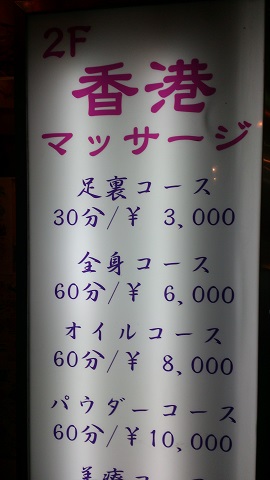 2F
香港
マッサージ
足裏コース
30分/¥ 3,000
全身コース
60分/¥ 6,000
オイルコース
60分/¥ 8,000
パウダーコース
60分/¥10,000